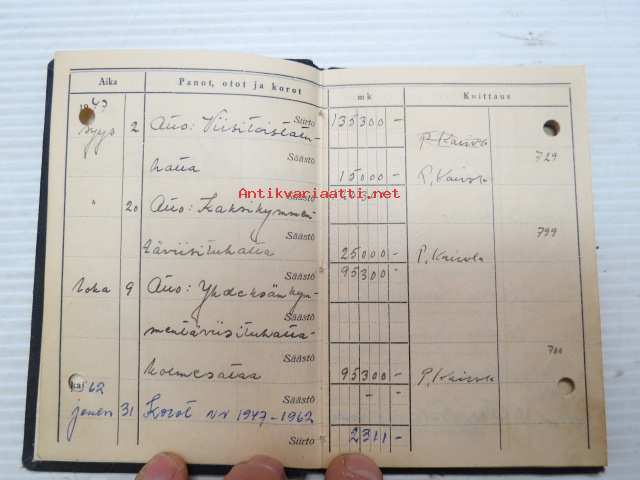 Aika Panot, otot ja korot mk Kuittaus
1947 Siirto 135300 -
Syys 2 Otto: Viisitoistatu-
P. Kaivola
Säästö 729
hatta 15000 - P. Kaivola
Antikvariaatti.net
" 20 Otto: Kaksikymmen-
Säästö 799
täviisituhatta 25000 - P. Kaivola
Säästö 95300 -
loka 9 Otto: Yhdeksänkym-
Säästö
mentäviisituhatta-
Säästö
kolmesataa 95300 - P. Kaivola
62 Säästö - -
31 Korot vv 1947-1962
Siirto 2311 -